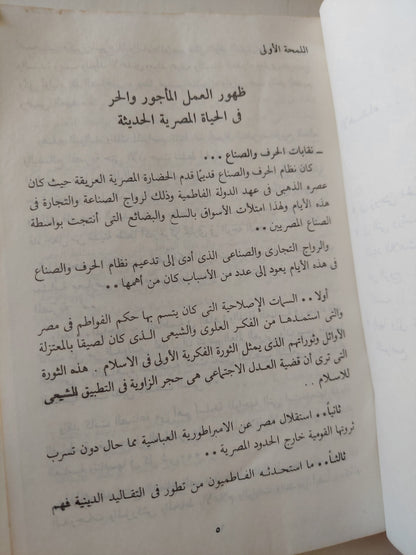 اللمحة الأولى
ظهور العمل المأجور والحر
فى الحياة المصرية الحديثة
ـ نقابات الحرف والصناع ...
كان نظام الحرف والصناع قديمًا قدم الحضارة المصرية العريقة حيث كان
عصره الذهبى فى عهد الدولة الفاطمية وذلك لرواج الصناعة والتجارة فى
هذه الأيام ولهذا امتلأت الأسواق بالسلع والبضائع التى أنتجت بواسطة
الصناع المصريين ..
والرواج التجارى والصناعى الذى أدى إلى تدعيم نظام الحرف والصناع
فى هذه الأيام يعود إلى عدد من الأسباب كان من أهمها ..
أولا .. السمات الإصلاحية التى كان يتسم بها حكم الفواطم فى مصر
والتى استمدها من الفكر العلوى والشيعى الذى كان لصيقا بالمعتزلة
الأوائل وثوراتهم الذى يمثل الثورة الفكرية الأولى فى الاسلام . هذه الثورة
التى ترى أن قضية العدل الاجتماعى هى حجر الزاوية فى التطبيق الشيعى
للاسلام ..
ثانياً .. استقلال مصر عن الامبراطورية العباسية مما حال دون تسرب
ثروتها القومية خارج الحدود المصرية ..
ثالثاً .. ما استحدثه الفاطميون من تطور فى التقاليد الدينية فهم
٥